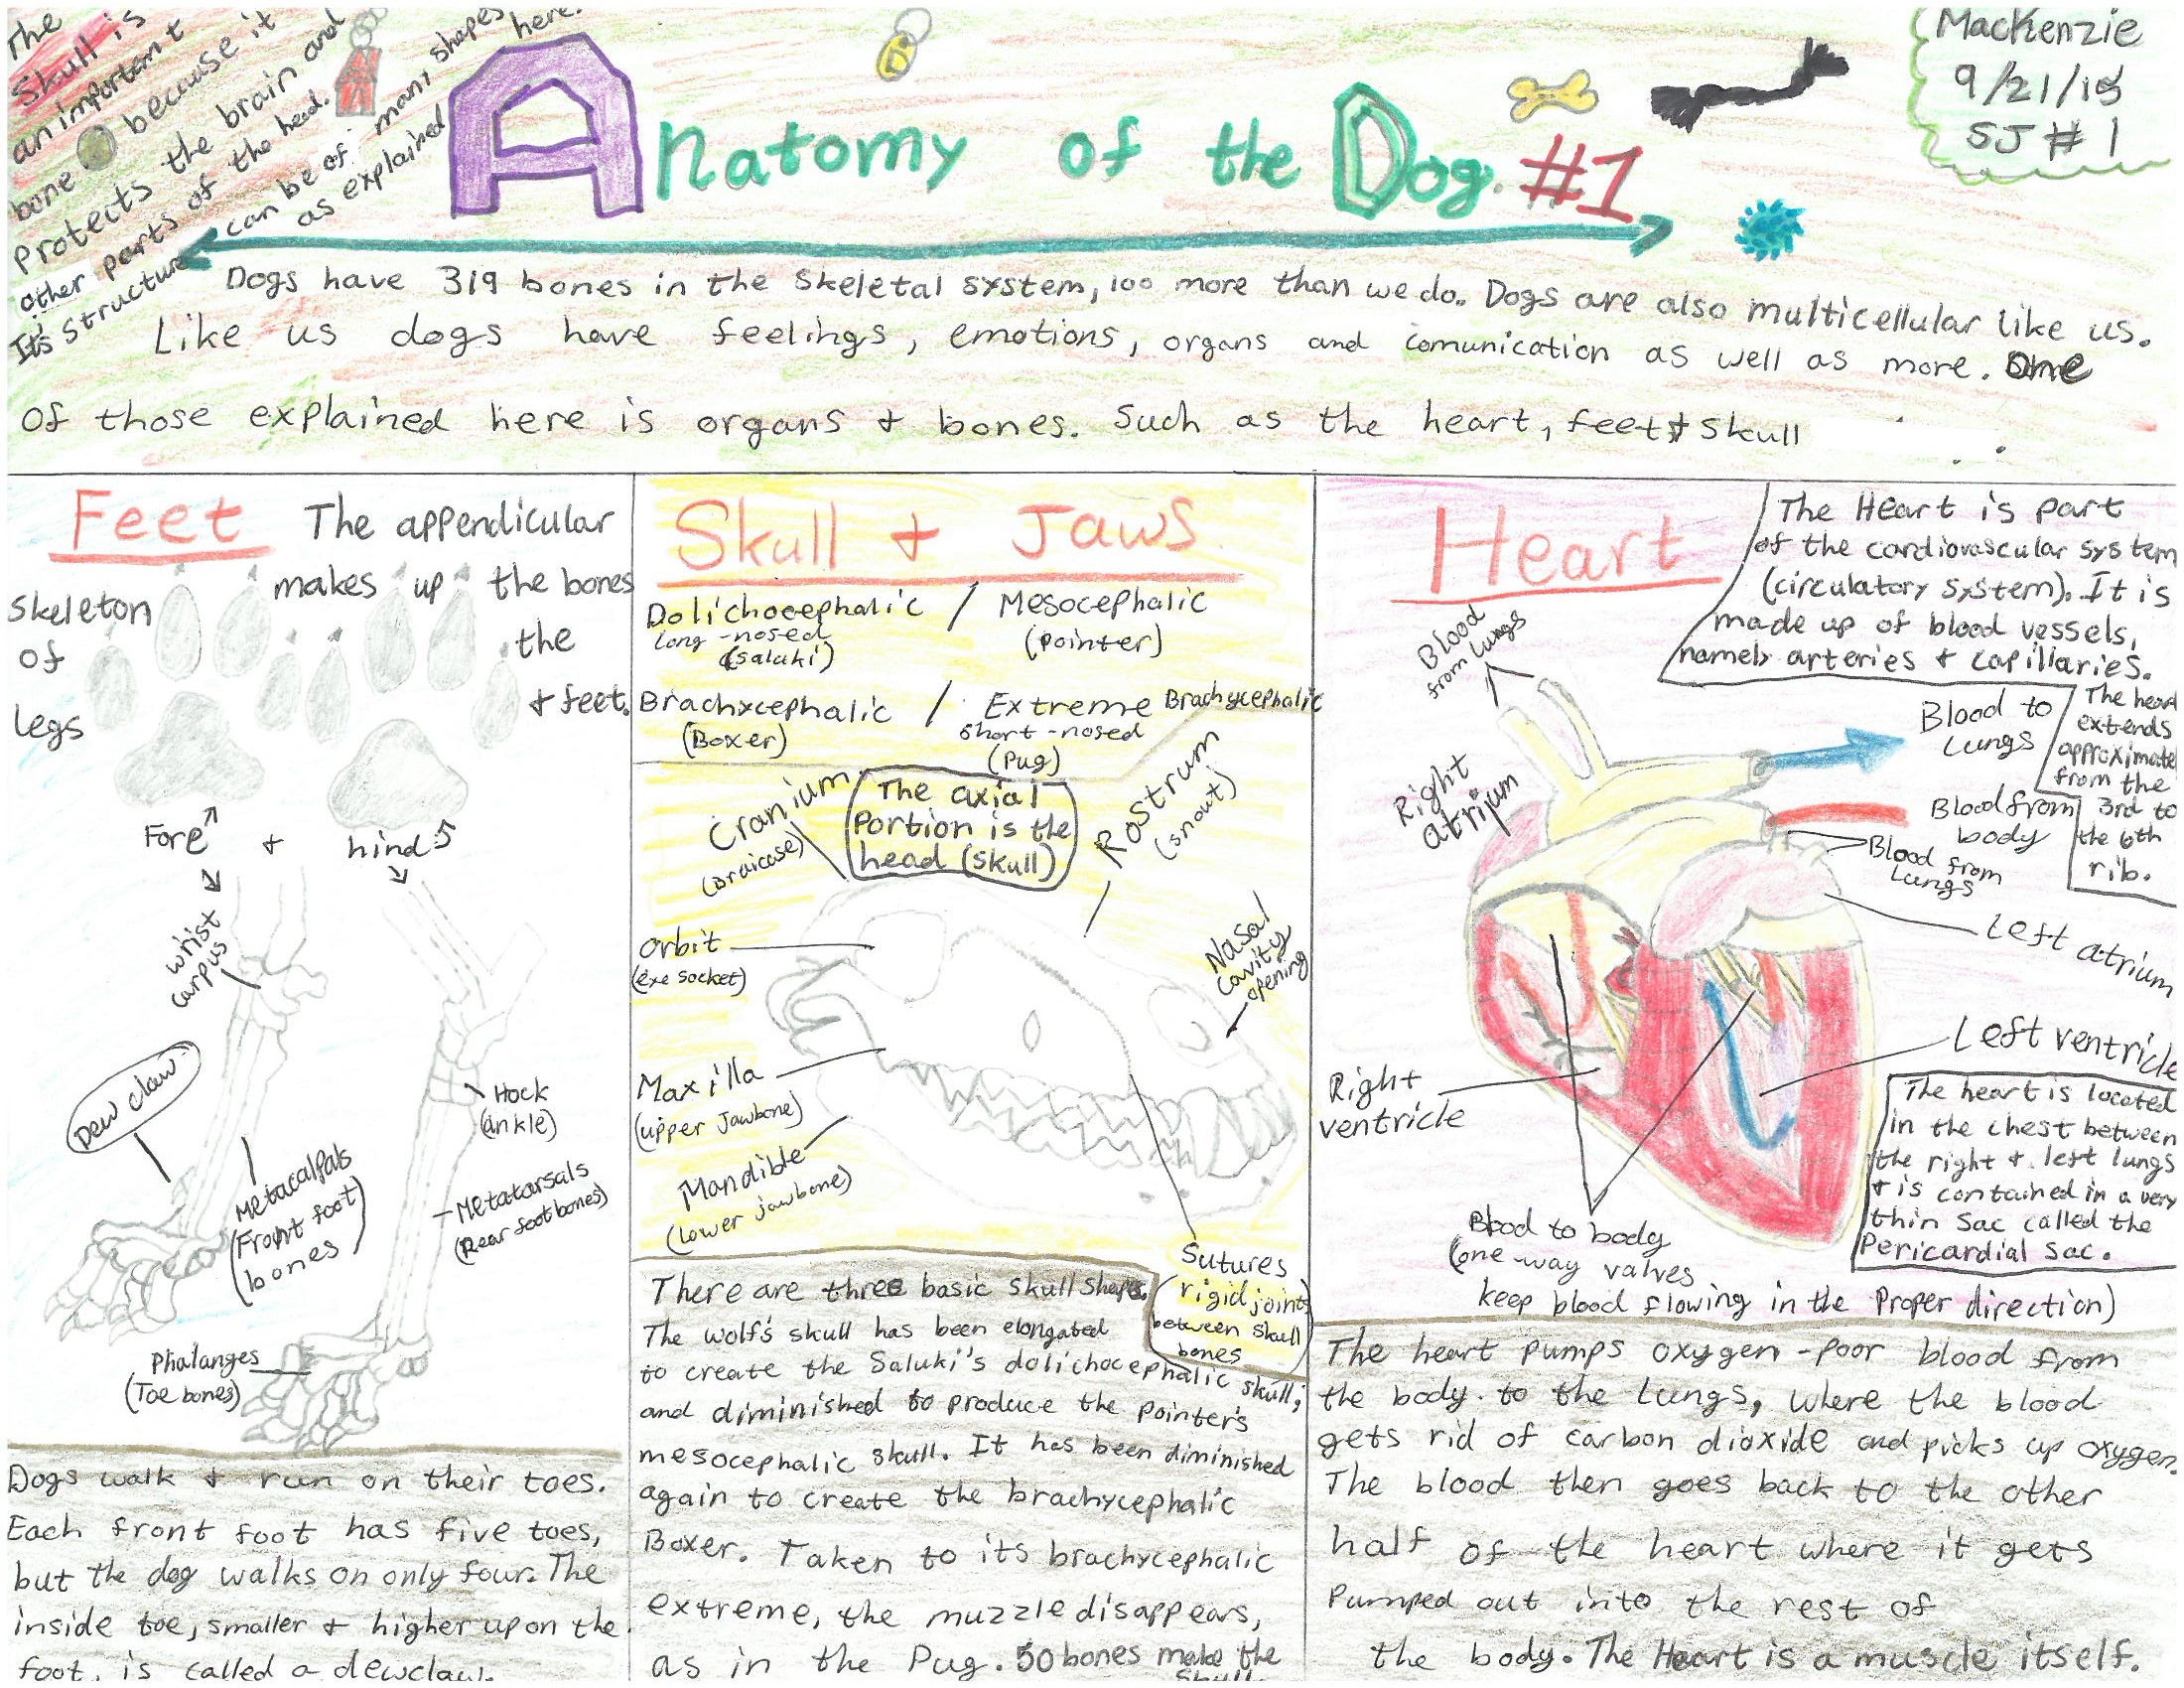 The
Skull is
an important
bone because it
Protects the brain and
other parts of the head.
It's structure can be of many shapes
as explained here.
Anatomy of the Dog. #1
Mackenzie
9/21/15
SJ # 1
Dogs have 319 bones in the skeletal system, 100 more than we do. Dogs are also multicellular like us.
Like us dogs have feelings, emotions, organs and comunication as well as more. One
of those explained here is organs + bones. Such as the heart, feet + skull
Feet The appendicular
skeleton makes up the bones
of the
legs + feet.
Fore + hind
wrist
carpus
Dew claw
Hock
(ankle)
Metacalpals
(Front foot
bones)
Metatarsals
(Rear foot bones)
Phalanges
(Toe bones)
Dogs walk + run on their toes.
Each front foot has five toes,
but the dog walks on only four. The
inside toe, smaller + higher up on the
foot, is called a dewclaw.
Skull + Jaws
Dolichocephalic / Mesocephalic
long-nosed (pointer)
(saluki)
Brachycephalic / Extreme Brachycephalic
(Boxer) Short-nosed
(Pug)
Cranium
(braicase)
The axial
Portion is the
head (skull)
Rostrum
(snout)
Orbit
(eye socket)
Nasal
cavity
opening
Maxilla
(upper Jawbone)
Mandible
(lower jawbone)
Sutures
(rigid joints
between skull
bones
There are three basic skull shaps.
The wolf's skull has been elongated
to create the Saluki's dolichocephalic skull;
and diminished to produce the pointer's
mesocephalic skull. It has been diminished
again to create the brachycephalic
Boxer. Taken to its brachycephalic
extreme, the muzzle disappears,
as in the Pug. 50 bones make the
skull.
Heart
The Heart is part
of the cardiovascular system
(circulatory system). It is
made up of blood vessels,
namely arteries + capillaries.
Blood
from lungs
Blood to
Lungs
The heart
extends
approximate
from the
3rd to
the 6th
rib.
Right
atrium
Blood from
body
Blood from
Lungs
Left atrium
Left ventricle
Right
ventricle
The heart is located
in the chest between
the right + left lungs
+ is contained in a very
thin sac called the
Pericardial sac.
Blood to body
(one-way valves
keep blood flowing in the proper direction)
The heart pumps oxygen-poor blood from
the body to the lungs, where the blood
gets rid of carbon dioxide and picks up oxygen.
The blood then goes back to the other
half of the heart where it gets
Pumped out into the rest of
the body. The Heart is a muscle itself.